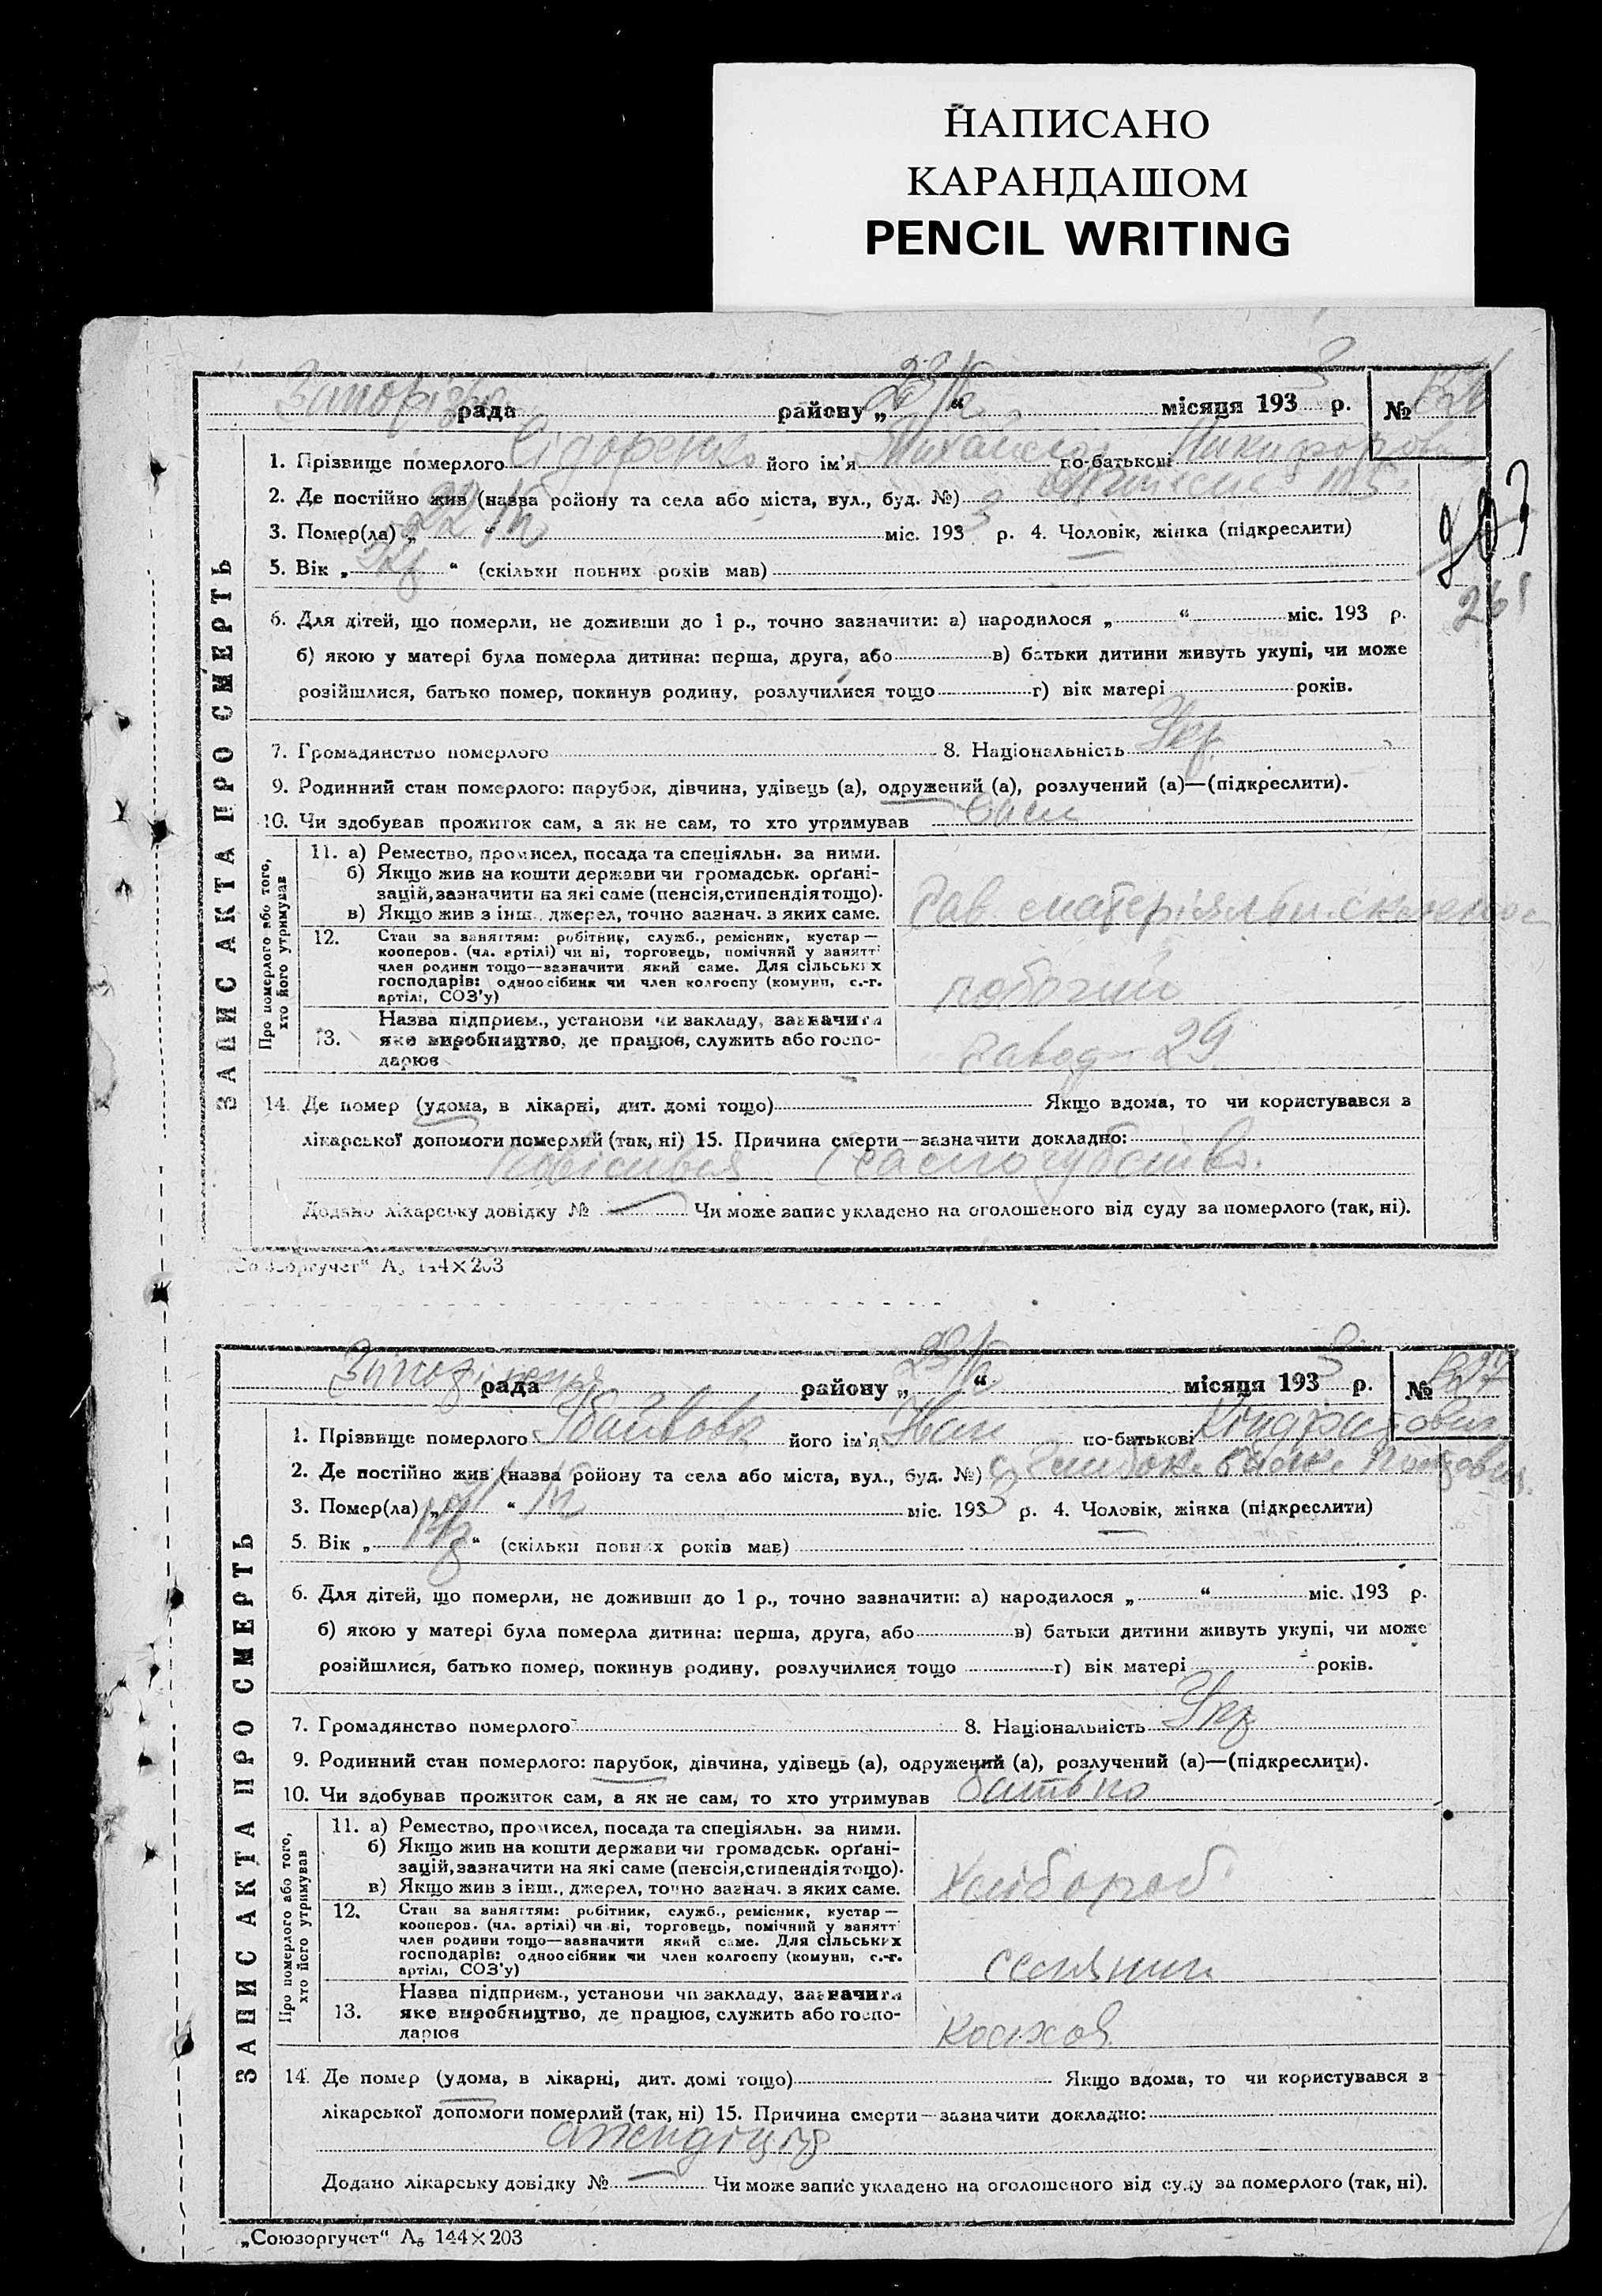 НАПИСАНО
КАРАНДАШОМ
PENCIL WRITING
рада району „ “ місяця 193 3 р. №
1. Прізвище померлого Сідоренко його ім'я Михайло по-батькові Никифорови
2. Де постійно жив (назва району та села або міста, вул., буд. №)
3. Помер(ла) „ 22 “ міс. 193 3 р. 4. Чоловік, жінка (підкреслити)
5. Вік „ “ (скільки повних років мав)
263
261
6. Для дітей, що померли, не доживши до 1 р., точно зазначити: а) народилося „ “ міс. 193 р.
б) якою у матері була померла дитина: перша, друга, або в) батьки дитини живуть укупі, чи може
розійшлися, батько помер, покинув родину, розлучилися тощо г) вік матері років.
7. Громадянство померлого 8. Національність Укр
9. Родинний стан померлого: парубок, дівчина, удівець (а), одружений (а), розлучений (а)—(підкреслити).
10. Чи здобував прожиток сам, а як не сам, то хто утримував Сам
11. а) Ремество, промисел, посада та спеціяльн. за ними.
б) Якщо жив на кошти держави чи громадськ. орґані-
зацій, зазначити на які саме (пенсія, стипендія тощо).
в) Якщо жив з інш. джерел, точно зазнач. з яких саме.
Зав. матеріяльн.
12. Стан за заняттям: робітник, служб., ремісник, кустар —
кооперов. (чл. артілі) чи ні, торговець, помічний у занятті
член родини тощо—зазначити який саме. Для сільських
господарів: одноосібник чи член колгоспу (комуни, с.-г.
артілі, СОЗ'у)
робочий
13. Назва підприєм., установи чи закладу, зазначити
яке виробництво, де працюв, служить або госпо-
дарюв
завод 29
Про померлого або того,
хто його утримував
ЗАПИС АКТА ПРО СМЕРТЬ
14. Де помер (удома, в лікарні, дит. домі тощо) Якщо вдома, то чи користувався з
лікарської допомоги померлий (так, ні) 15. Причина смерти—зазначити докладно:
Повісився (самогубство.
Додано лікарську довідку № Чи може запис укладено на оголошеного від суду за померлого (так, ні).
„Союзоргучет“ А5 144×203
рада району „ “ місяця 193 3 р. №
1. Прізвище померлого його ім'я Іван по-батькові Кіндратович
2. Де постійно жив (назва району та села або міста, вул., буд. №)
3. Помер(ла) „ “ міс. 193 3 р. 4. Чоловік, жінка (підкреслити)
5. Вік „ “ (скільки повних років мав)
6. Для дітей, що померли, не доживши до 1 р., точно зазначити: а) народилося „ “ міс. 193 р.
б) якою у матері була померла дитина: перша, друга, або в) батьки дитини живуть укупі, чи може
розійшлися, батько помер, покинув родину, розлучилися тощо г) вік матері років.
7. Громадянство померлого 8. Національність Укр
9. Родинний стан померлого: парубок, дівчина, удівець (а), одружений (а), розлучений (а)—(підкреслити).
10. Чи здобував прожиток сам, а як не сам, то хто утримував батько
11. а) Ремество, промисел, посада та спеціяльн. за ними.
б) Якщо жив на кошти держави чи громадськ. орґані-
зацій, зазначити на які саме (пенсія, стипендія тощо).
в) Якщо жив з інш., джерел, точно зазнач. з яких саме.
Хлібороб
12. Стан за заняттям: робітник, служб., ремісник, кустар —
кооперов. (чл. артілі) чи ні, торговець, помічний у занятт
член родини тощо—зазначити який саме. Для сільських
господарів: одноосібник чи член колгоспу (комуни, с.-г.
артілі, СОЗ'у)
селянин
13. Назва підприєм., установи чи закладу, зазначити
яке виробництво, де працюв, служить або госпо-
дарюв
колхоз
Про померлого або того,
хто його утримував
ЗАПИС АКТА ПРО СМЕРТЬ
14. Де помер (удома, в лікарні, дит. домі тощо) Якщо вдома, то чи користувався з
лікарської допомоги померлий (так, ні) 15. Причина смерти—зазначити докладно:
Додано лікарську довідку № Чи може запис укладено на оголошеного від суду за померлого (так, ні).
„Союзоргучет“ А5 144×203